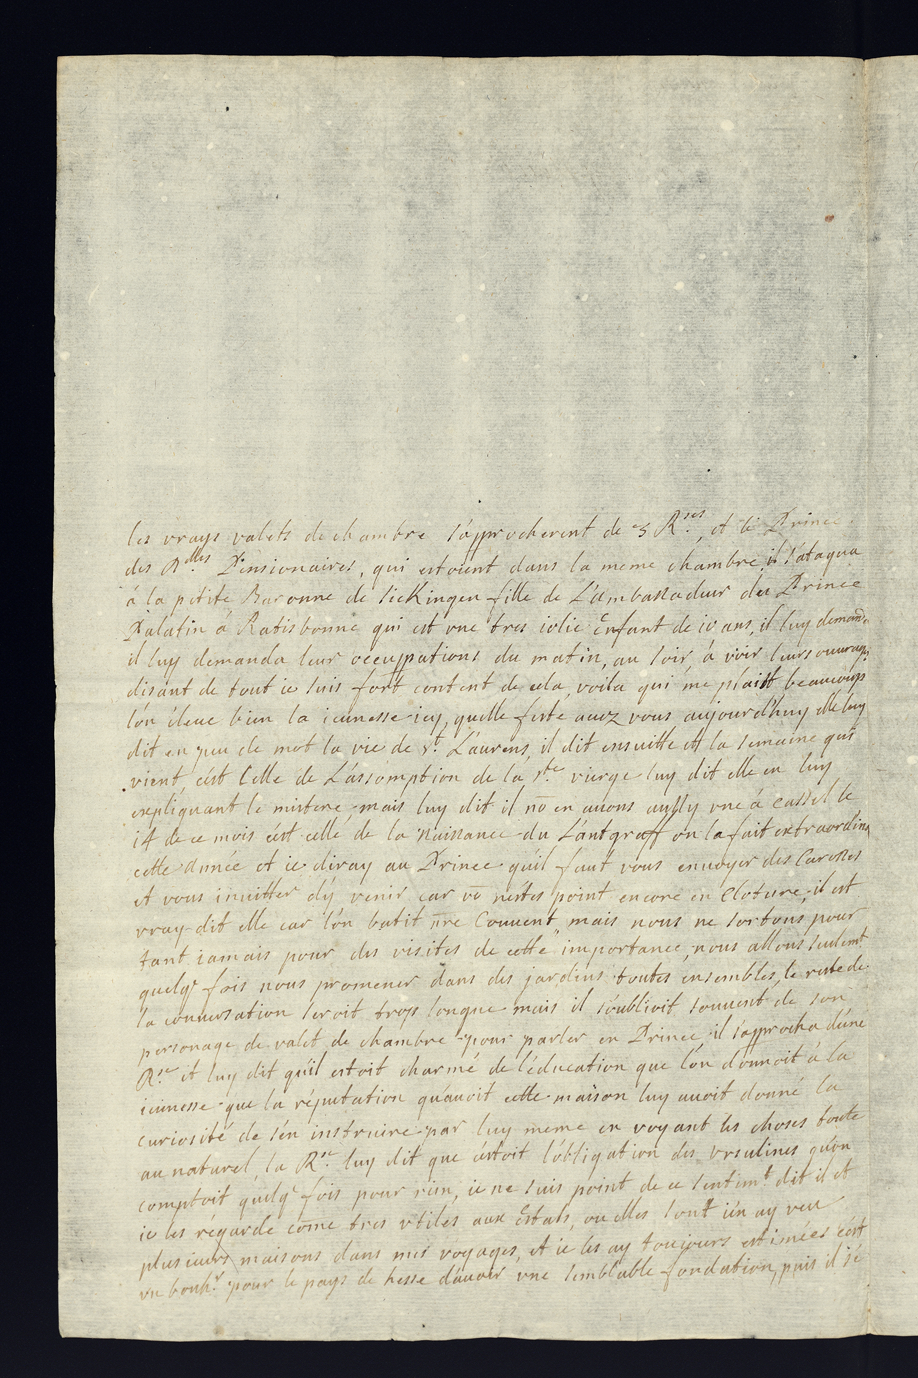 les vrays valets de chambre s'approcherent de 3 R.ses, et le Prince
des R.elles Pensionaires, qui estoient dans la meme chambre, il s'ataqua
á la petite Baronne de sicKingen fille de L'ambassadeur du Prince
Palatin á Ratisbonne qui est vne tres iolie Enfant de 10 ans, il luy demanda
il luy demanda leur occuppations du matin, au soir, á voir leurs ouvrages
disant de tout ie suis fort content de cela, voila qui me plaist beaucoups
lón éleue bien la ieunesse icy, quelle feste auez vous aujourd'huy elle luy
dit en peu de mot la vie de st. Laurens, il dit ensuitte et la semaine qui
vient, cést Celle de L'assomption de la ste. vierge luy dit elle en luy
expliquant le mistere, mais luy dit il no en auons aussy vne á cassel le
14 de ce mois cést celle de la Naissance du Lantgraff on la fait extraordin
cette Année et ie diray au Prince quíl faut vous enuoyer des Carosses
et vous inuitter d'y venir car vo nestes point encore en Cloture, il est
vray dit elle car lón batit nre Couuent, mais nous ne sortons pour
tant iamais pour des visites de cette importance, nous allons seulemt
quelqe fois nous promener dans des jardins toutes ensembles, le reste de
la conuersation seroit trop longue mais il s'oublioit souuent de son
personage de valet de chambre pour parler en Prince, il s'approcha d'une
R.se et luy dit quíl estoit charmé de l'éducation que lón donnoit á la
ieunesse que la réputation quauoit cette maison luy auoit donné la
curiosité de sén instruire par luy meme en voyant les choses toutte
au naturel, la R.se luy dit que cétoit lóbligation des vrsulines quón
comptoit quelqe fois pour rien, ie ne suis point de ce sentimt dit il et
ie les régarde come tres vtiles aux Estats, ou elles sont ién ay veu
plusieurs maisons dans mes voyages, et ie les ay toujours estimées cést
vn bonhr. pour le pays de hesse dáuoir vne semblable fondation, puis il sé